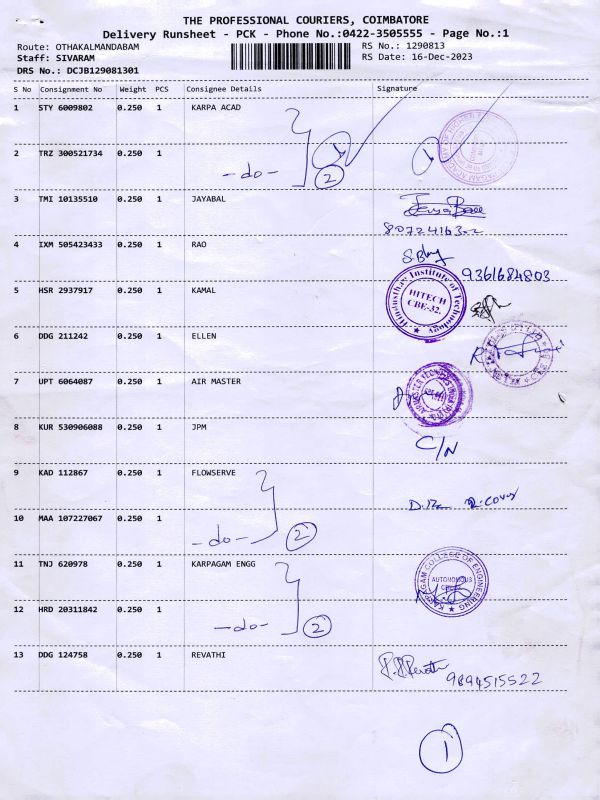 THE PROFESSIONAL COURIERS, COIMBATORE
Delivery Runsheet - PCK - Phone No.:0422-3505555 - Page No.:1
Route: OTHAKALMANDABAM RS No.: 1290813
Staff: SIVARAM RS Date: 16-Dec-2023
DRS No.: DCJB129081301
S No Consignment No Weight PCS Consignee Details Signature
1 STY 6009802 0.250 1 KARPA ACAD
2 TRZ 300521734 0.250 1 -do- 2 1 1
3 TMI 10135510 0.250 1 JAYABAL
4 IXM 505423433 0.250 1 RAO
9361684803
5 HSR 2937917 0.250 1 KAMAL
Hindusthan Institute of Technology
HITECH
CBE-32.
6 DDG 211242 0.250 1 ELLEN
7 UPT 6064087 0.250 1 AIR MASTER
8 KUR 530906088 0.250 1 JPM
C/N
9 KAD 112867 0.250 1 FLOWSERVE
10 MAA 107227067 0.250 1 -do- 2
11 TNJ 620978 0.250 1 KARPAGAM ENGG
KARPAGAM COLLEGE OF ENGINEERING
AUTONOMOUS
12 HRD 20311842 0.250 1 -do- 2
13 DDG 124758 0.250 1 REVATHI
9894515522
1